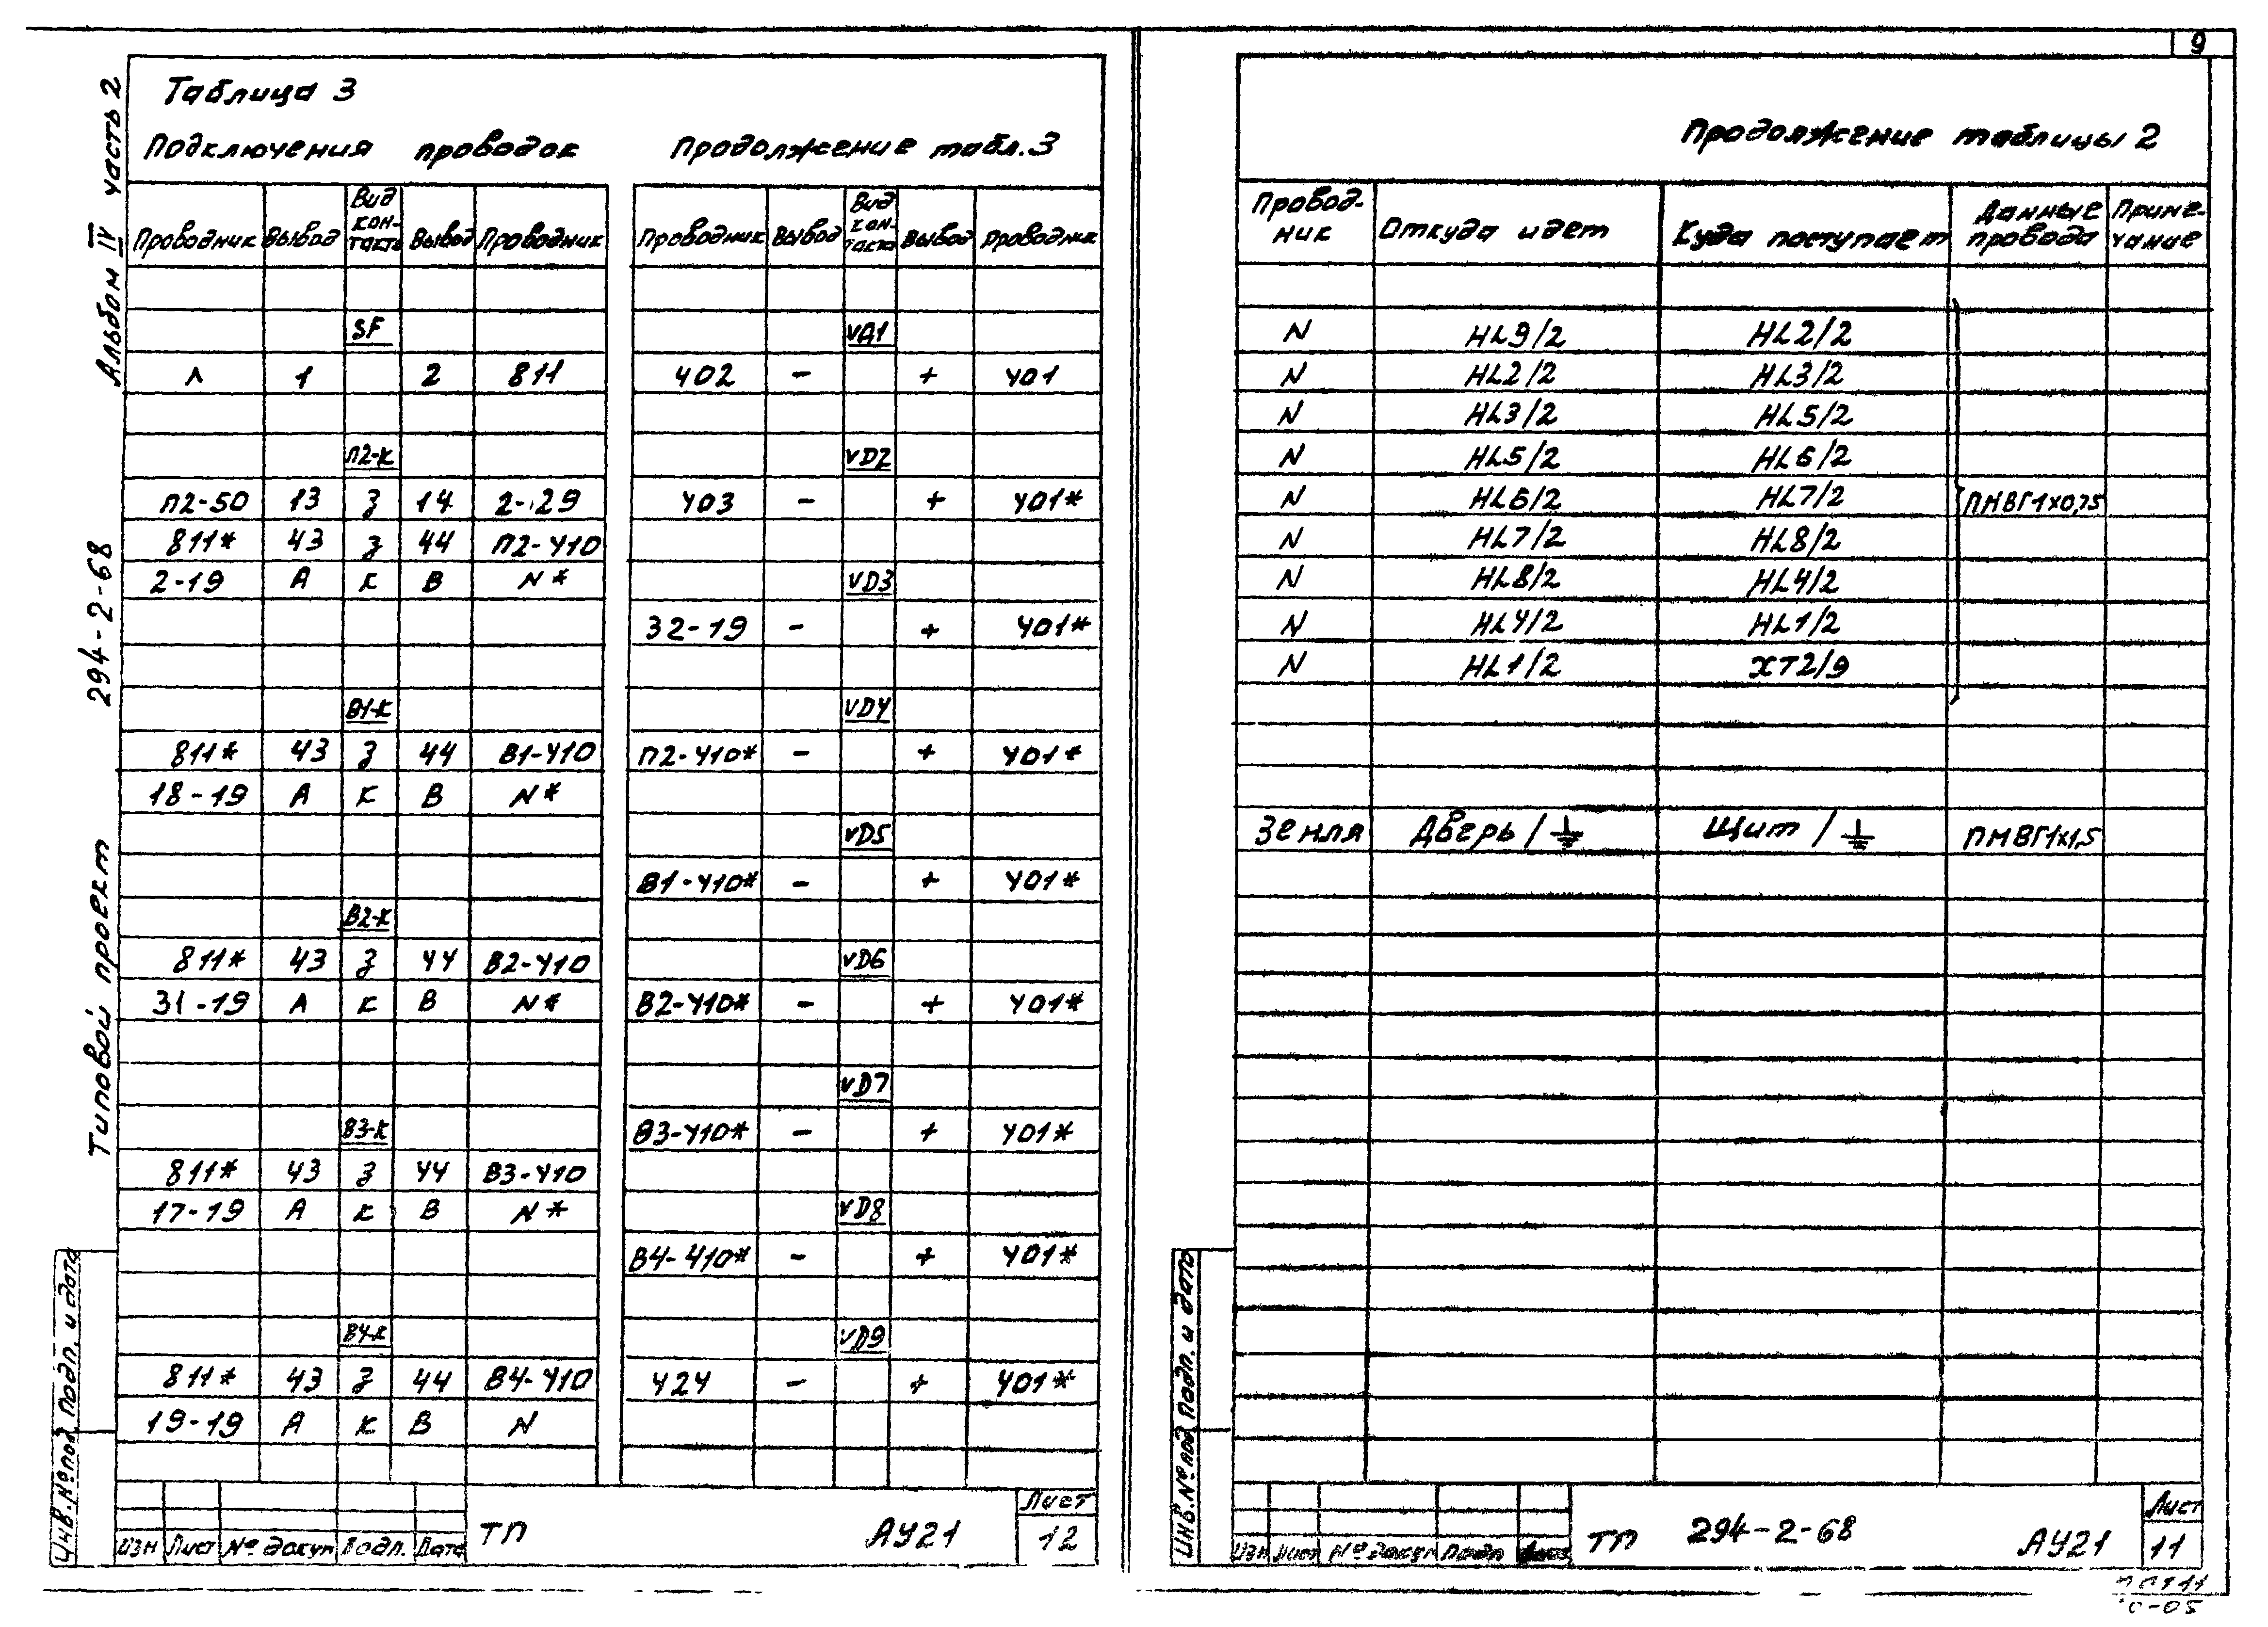 9
Альбом IV часть 2
294-2-68
Типовой проект
Инв.№под Подп. и дата
Таблица 3
Подключения проводок
Проводник Вывод Вид кон-такта Вывод Проводник
SF
Л 1 2 811
П2-К
П2-50 13 З 14 2-29
811* 43 З 44 П2-410
2-19 А К В N*
В1-К
811* 43 З 44 В1-410
18-19 А К В N*
В2-К
811* 43 З 44 В2-410
31-19 А К В N*
В3-К
811* 43 З 44 В3-410
17-19 А К В N*
В4-К
811* 43 З 44 В4-410
19-19 А К В N
Продолжение табл.3
Проводник Вывод Вид кон-такта Вывод Проводник
VД1
402 - + 401
VD2
403 - + 401*
VD3
32-19 - + 401*
VD4
П2-410* - + 401*
VD5
В1-410* - + 401*
VD6
В2-410* - + 401*
VD7
В3-410* - + 401*
VD8
В4-410* - + 401*
VD9
424 - + 401*
Изм Лист № докум Подп. Дата
ТП АУ21
Лист
12
Продолжение таблицы 2
Провод-ник Откуда идет Куда поступает Данные провода Приме-чание
N HL9/2 HL2/2
N HL2/2 HL3/2
N HL3/2 HL5/2
N HL5/2 HL6/2
N HL6/2 HL7/2 ПМВГ1х0,75
N HL7/2 HL8/2
N HL8/2 HL4/2
N HL4/2 HL1/2
N HL1/2 XT2/9
Земля Дверь/⏚ Щит/⏚ ПМВГ1х1,5
Инв.№под Подп. и дата
Изм Лист № докум Подп
ТП 294-2-68 АУ21
Лист
11